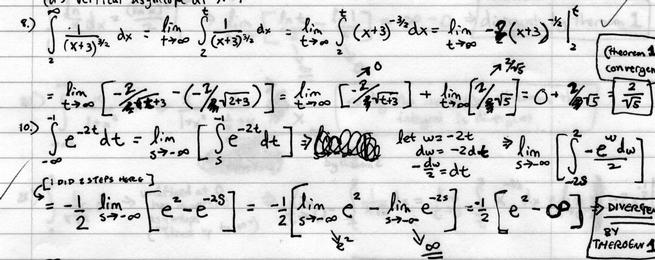 8.) ∫₂^∞ 1/(x+3)^{3/2} dx = lim_{t→∞} ∫₂^t 1/(x+3)^{3/2} dx = lim_{t→∞} ∫₂^t (x+3)^{-3/2} dx = lim_{t→∞} -2(x+3)^{-1/2} |₂^t
(theorem 1
convergen
= lim_{t→∞} [-2/√t+3 - (-2/√2+3)] = lim_{t→∞} [-2/√t+3] → 0 + lim_{t→∞} [2/√5] → 2/√5 = 0 + 2/√5 = 2/√5
10.) ∫_{-∞}^{-1} e^{-2t} dt = lim_{s→-∞} [∫_s^{-1} e^{-2t} dt] ⇒ let w = -2t dw = -2dt -dw/2 = dt ⇒ lim_{s→-∞} [∫_{-2s}^{2} -e^w dw/2]
[I DID 2 STEPS HERE]
= -1/2 lim_{s→-∞} [e² - e^{-2s}] = -1/2 [lim_{s→-∞} e² - lim_{s→-∞} e^{-2s}] = -1/2 [e² - ∞] ⇒ DIVERGEN
BY
THEROEM 1
e² ∞